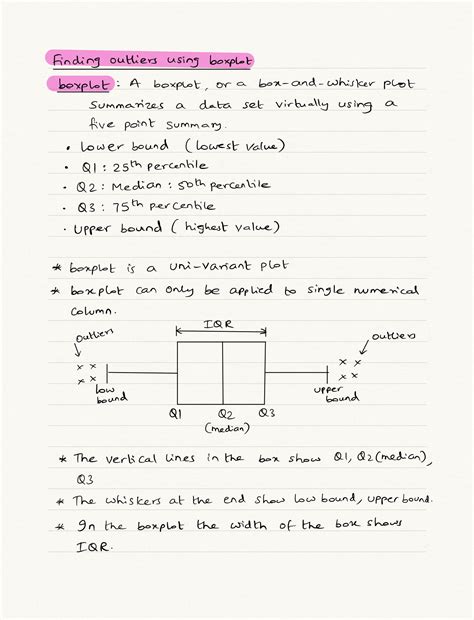 Finding outliers using boxplot
boxplot : A boxplot, or a box-and-whisker plot
summarizes a data set virtually using a
five point summary.
• Lower bound (lowest value)
• Q1 : 25th percentile
• Q2 : Median : 50th percentile
• Q3 : 75th percentile
• Upper bound (highest value)
* boxplot is a uni-variant plot
* boxplot can only be applied to single numerical
column.
outliers
IQR
outliers
low
bound
upper
bound
Q1 Q2 Q3
(median)
* The vertical lines in the box show Q1, Q2(median),
Q3
* The whiskers at the end show low bound, upper bound.
* In the boxplot the width of the box shows
IQR.